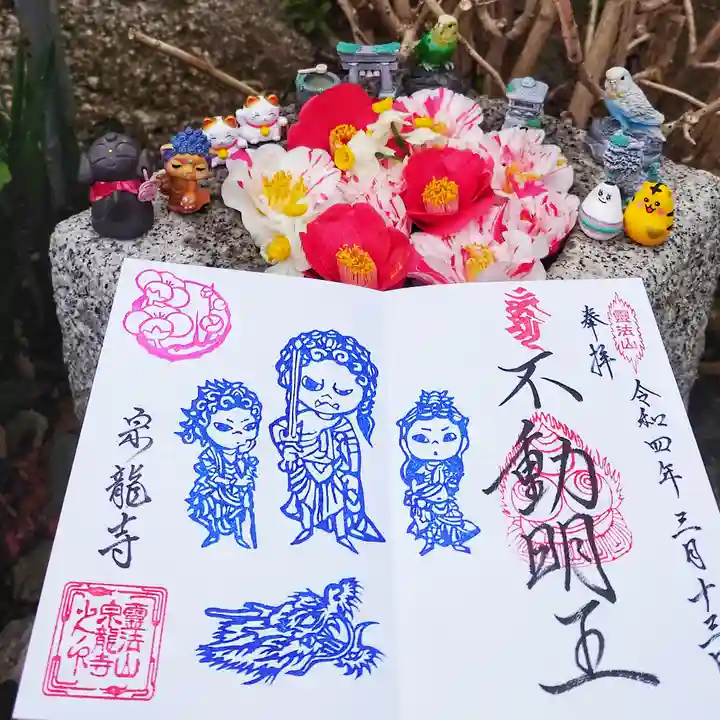 奉拝
霊法山
令和四年三月十三日
不動明王
宗龍寺
霊法山
宗龍寺